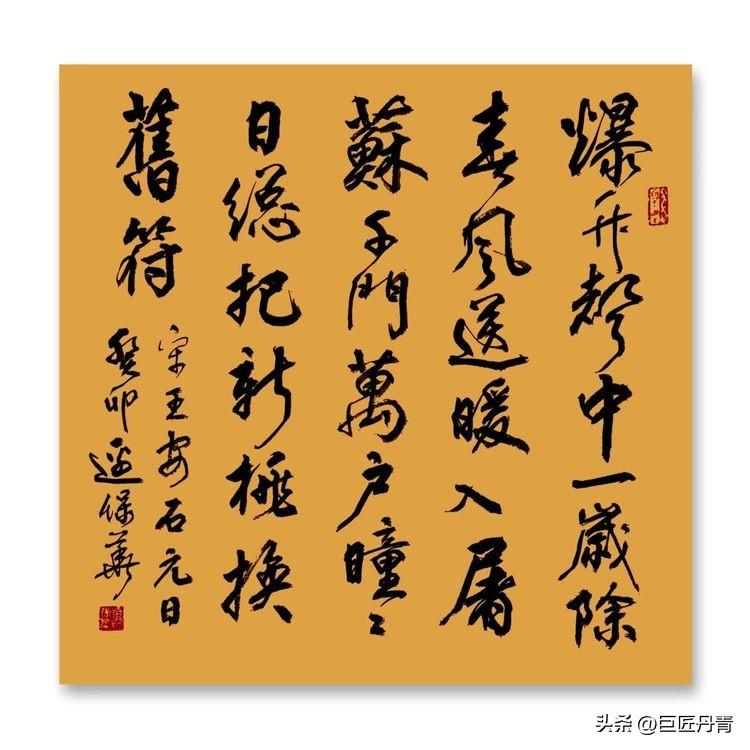 爆竹聲中一歲除
春風送暖入屠
蘇千門萬户曈〻
日總把新桃換
舊符
宋王安石元日
癸卯保華
头条 @巨匠丹青